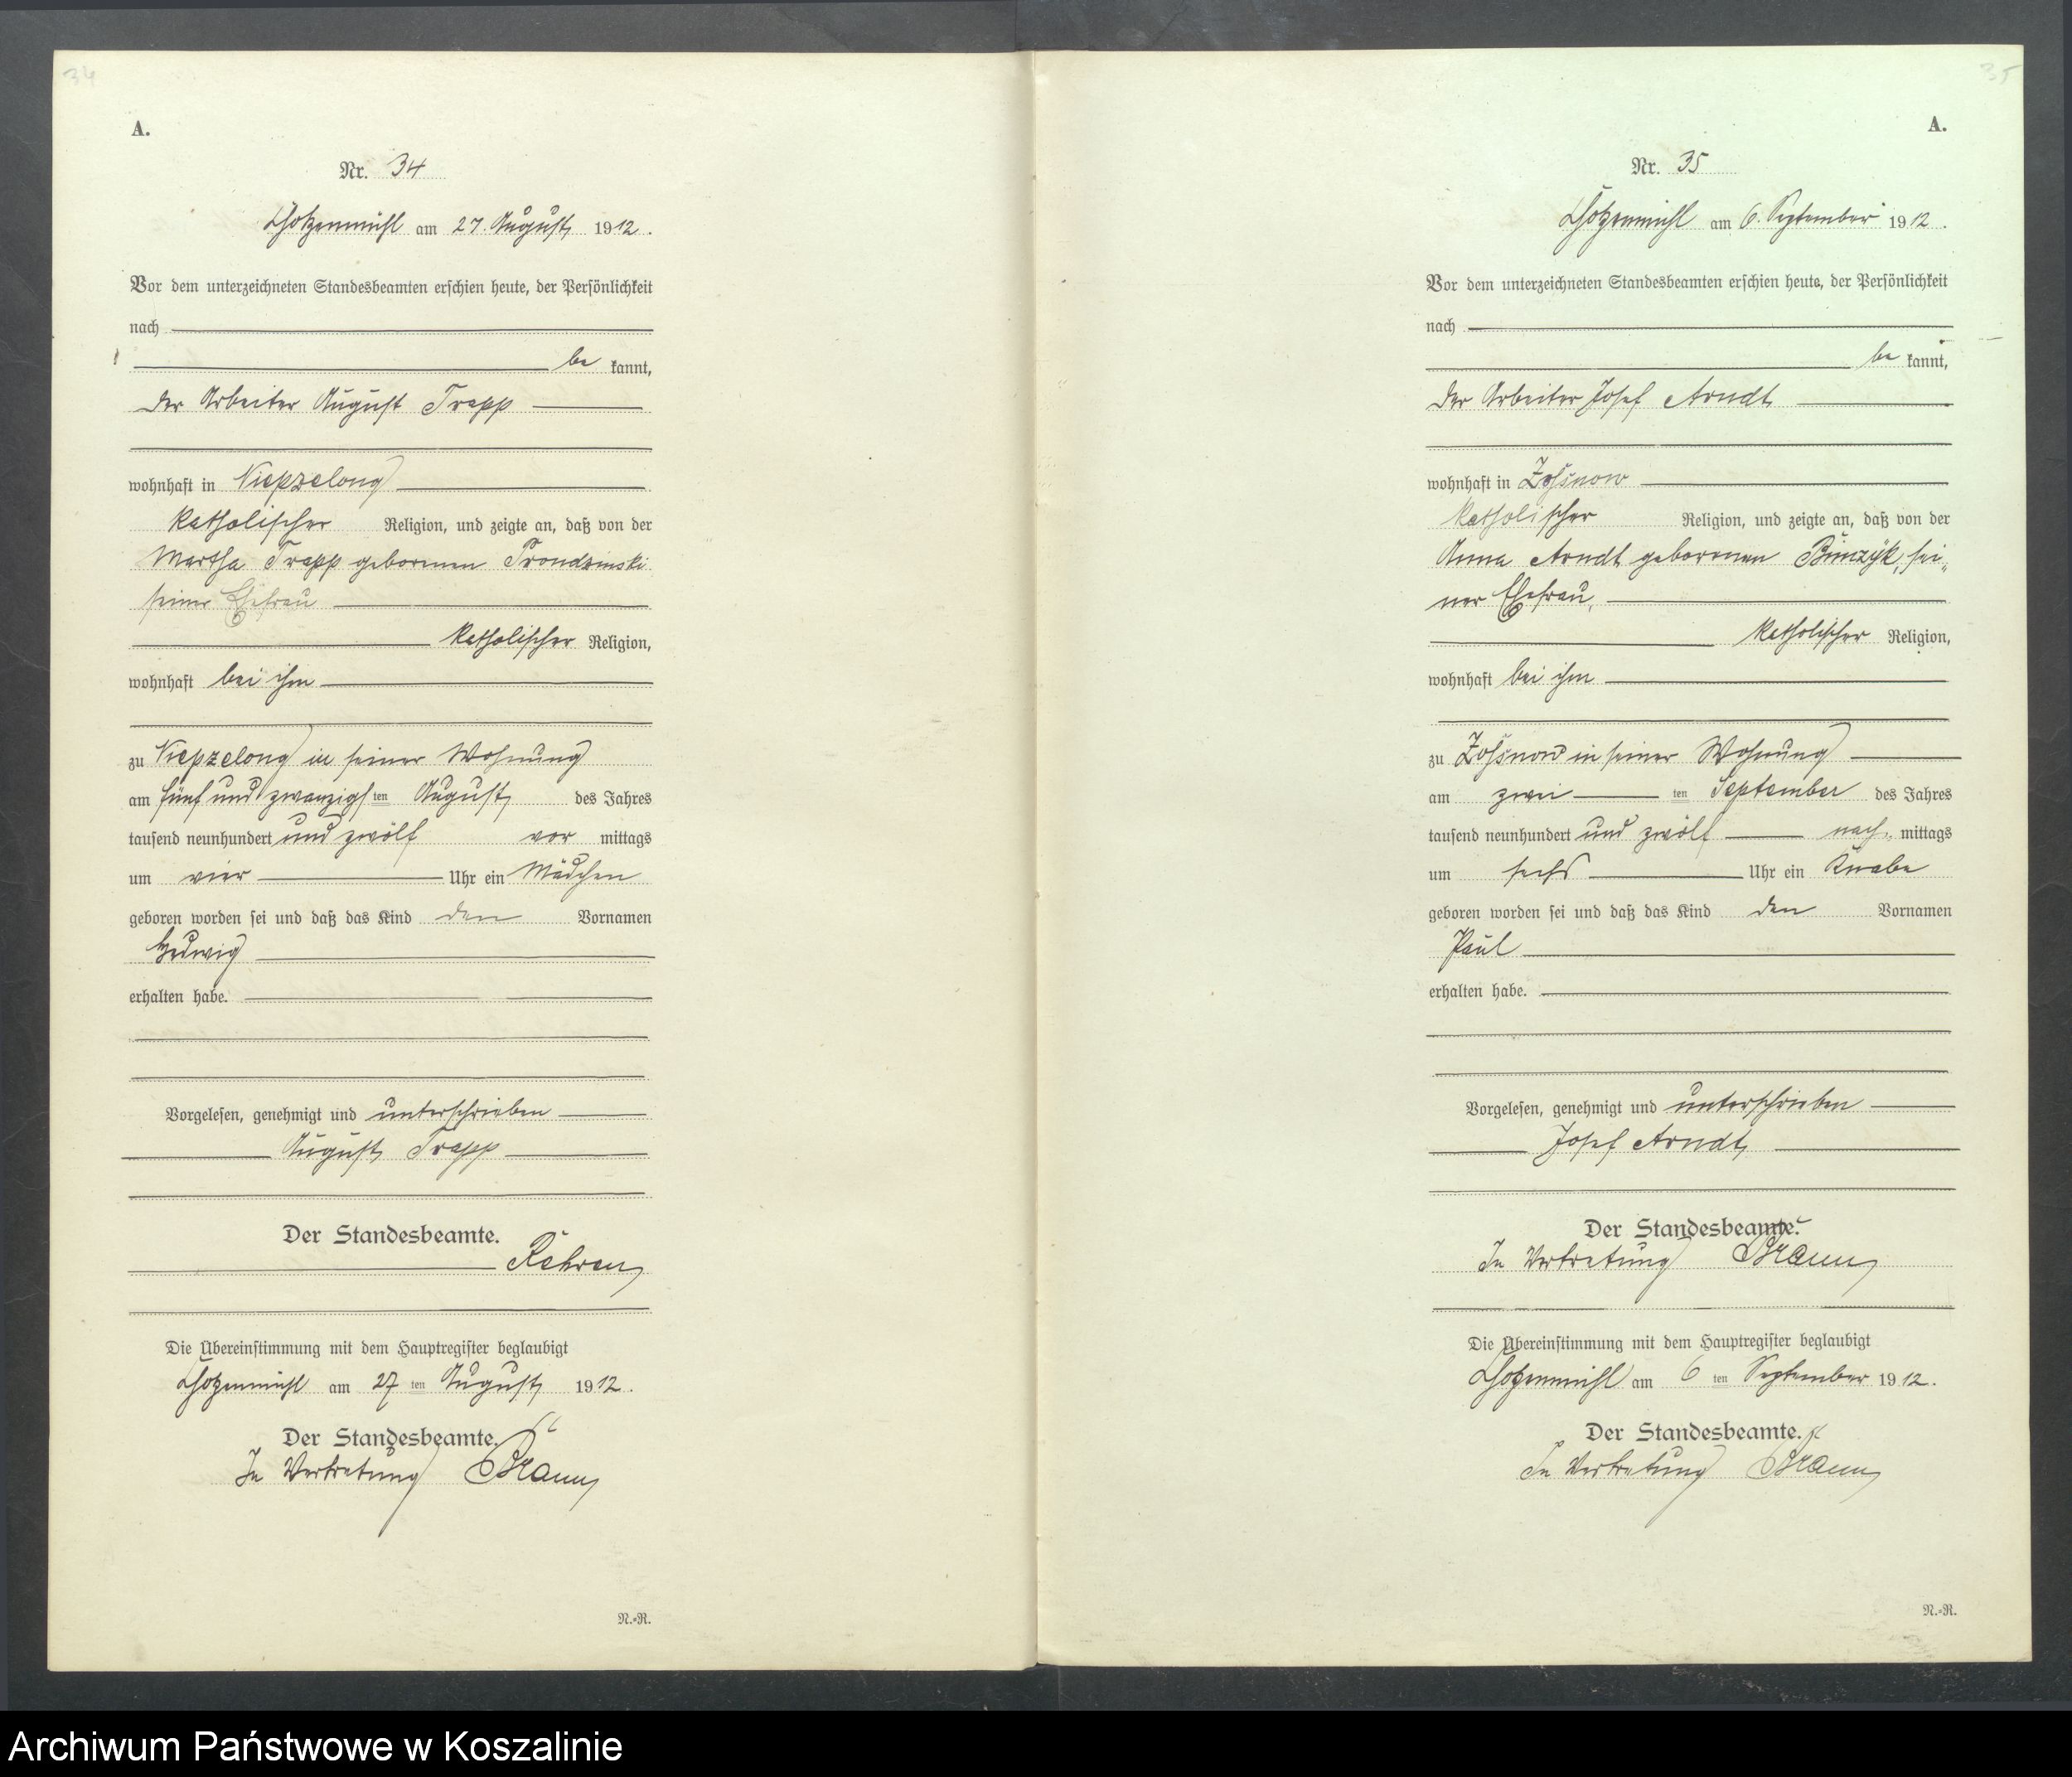 34
A.
Nr. 34
Lhotzenmühl am 27. August 1912.
Vor dem unterzeichneten Standesbeamten erschien heute, der Persönlichkeit
nach
be kannt,
der Arbeiter August Trapp
wohnhaft in Niepzelong
katholischer Religion, und zeigte an, daß von der
Martha Trapp geborenen Prondzinski
seiner Ehefrau
katholischer Religion,
wohnhaft bei ihm
zu Niepzelong in seiner Wohnung
am fünf und zwanzigsten August des Jahres
tausend neunhundert und zwölf vor mittags
um vier Uhr ein Mädchen
geboren worden sei und daß das Kind den Vornamen
Hedwig
erhalten habe.
Vorgelesen, genehmigt und unterschrieben
August Trapp
Der Standesbeamte.
Die Übereinstimmung mit dem Hauptregister beglaubigt
Lhotzenmühl am 27 ten August 1912.
Der Standesbeamte.
In Vertretung
N.-R.
35
A.
Nr. 35
Lhotzenmühl am 6. September 1912.
Vor dem unterzeichneten Standesbeamten erschien heute, der Persönlichkeit
nach
be kannt,
der Arbeiter Josef Arndt
wohnhaft in Zossnow
katholischer Religion, und zeigte an, daß von der
Anna Arndt geborenen sei-
ner Ehefrau,
katholischer Religion,
wohnhaft bei ihm
zu Zossnow in seiner Wohnung
am zwei ten September des Jahres
tausend neunhundert und zwölf nach mittags
um sechs Uhr ein Knabe
geboren worden sei und daß das Kind den Vornamen
Paul
erhalten habe.
Vorgelesen, genehmigt und unterschrieben
Josef Arndt
Der Standesbeamte.
In Vertretung
Die Übereinstimmung mit dem Hauptregister beglaubigt
Lhotzenmühl am 6 ten September 1912.
Der Standesbeamte.
In Vertretung
N.-R.
Archiwum Państwowe w Koszalinie